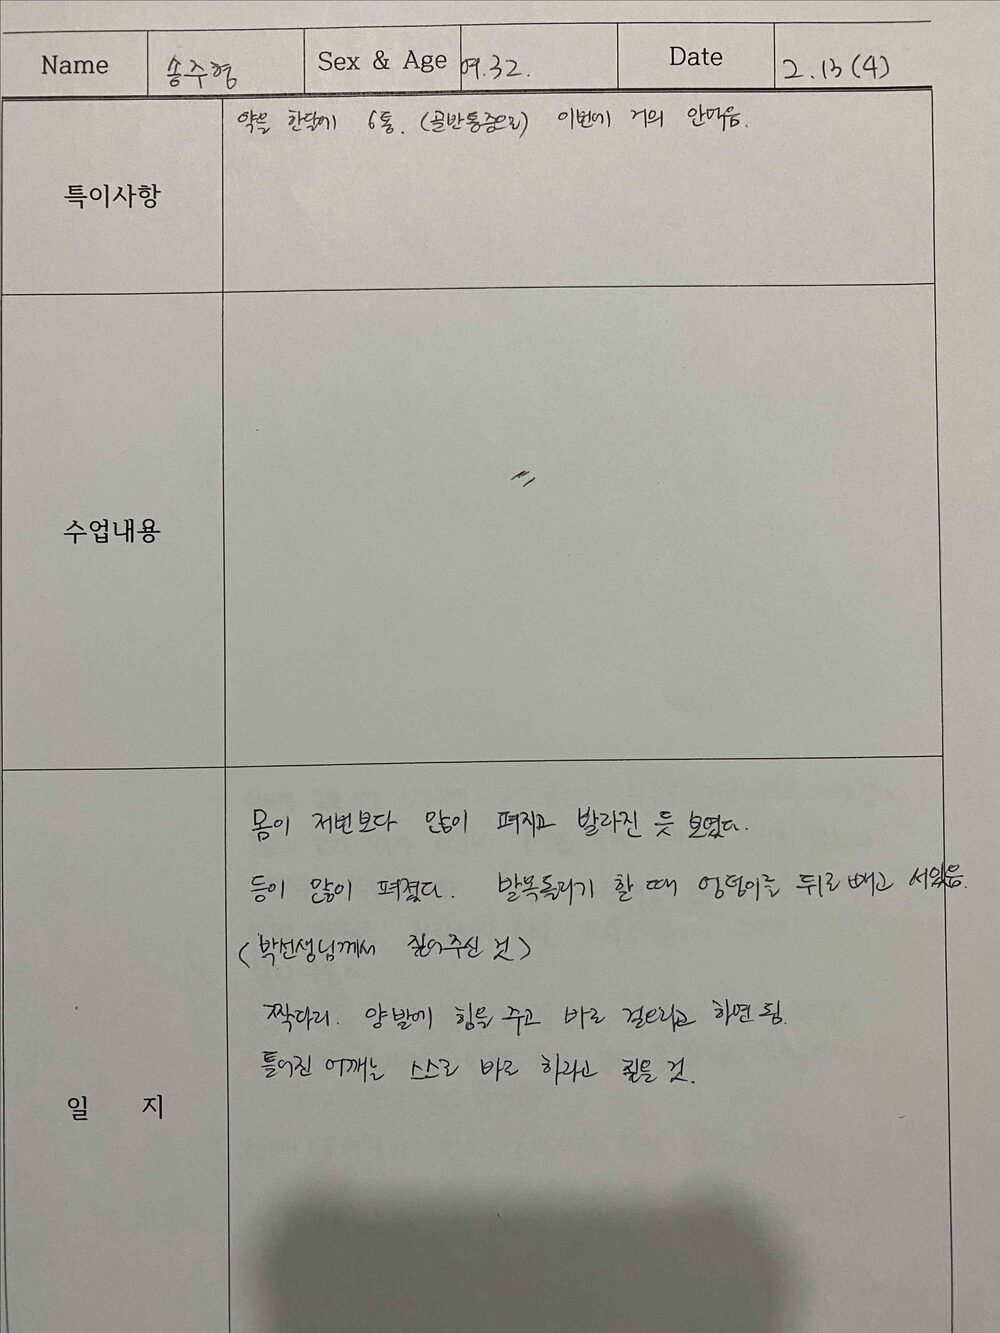 Name 송주형 Sex & Age 여.32. Date 2.13(4)
특이사항 약을 한달에 6통. (골반통증으로) 이번에 거의 안먹음.
수업내용
일 지
몸이 저번보다 많이 펴지고 발라진 듯 보였다.
등이 많이 펴졌다. 발목돌리기 할 때 엉덩이를 뒤로 빼고 서있음.
(박선생님께서 짚어주신 것)
짝다리. 양발에 힘을 주고 바로 걸으라고 하면 됨.
틀어진 어깨는 스스로 바로 하라고 짚을 것.